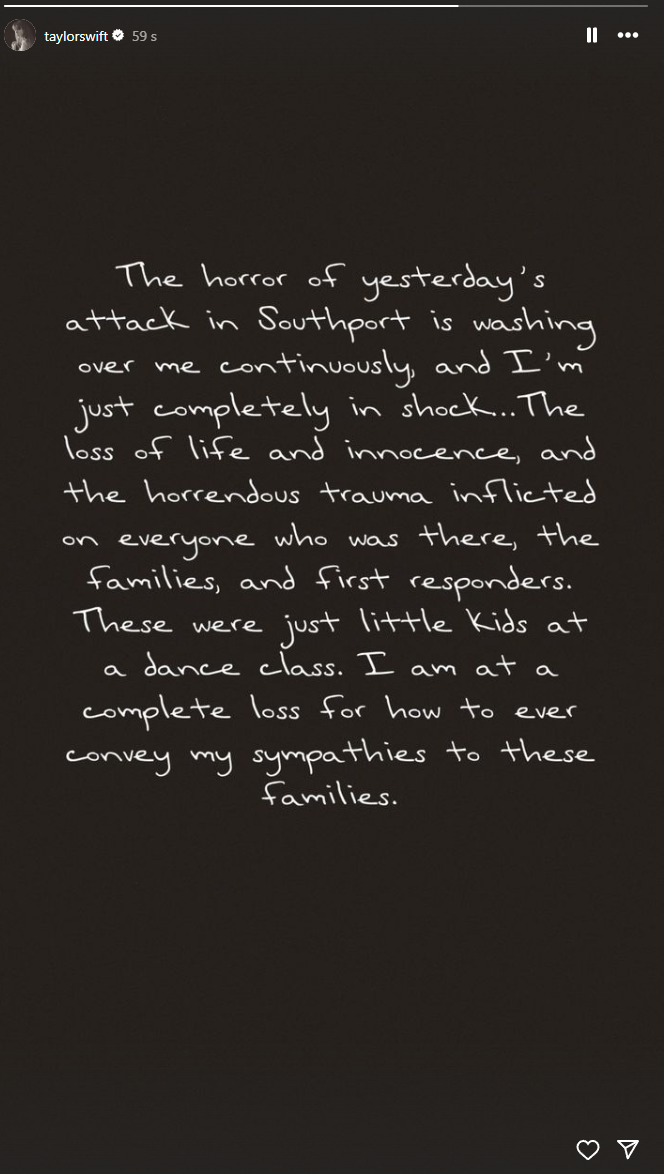 taylorswift 59 s
The horror of yesterday's
attack in Southport is washing
over me continuously, and I'm
just completely in shock...The
loss of life and innocence, and
the horrendous trauma inflicted
on everyone who was there, the
families, and first responders.
These were just little kids at
a dance class. I am at a
complete loss for how to ever
convey my sympathies to these
families.